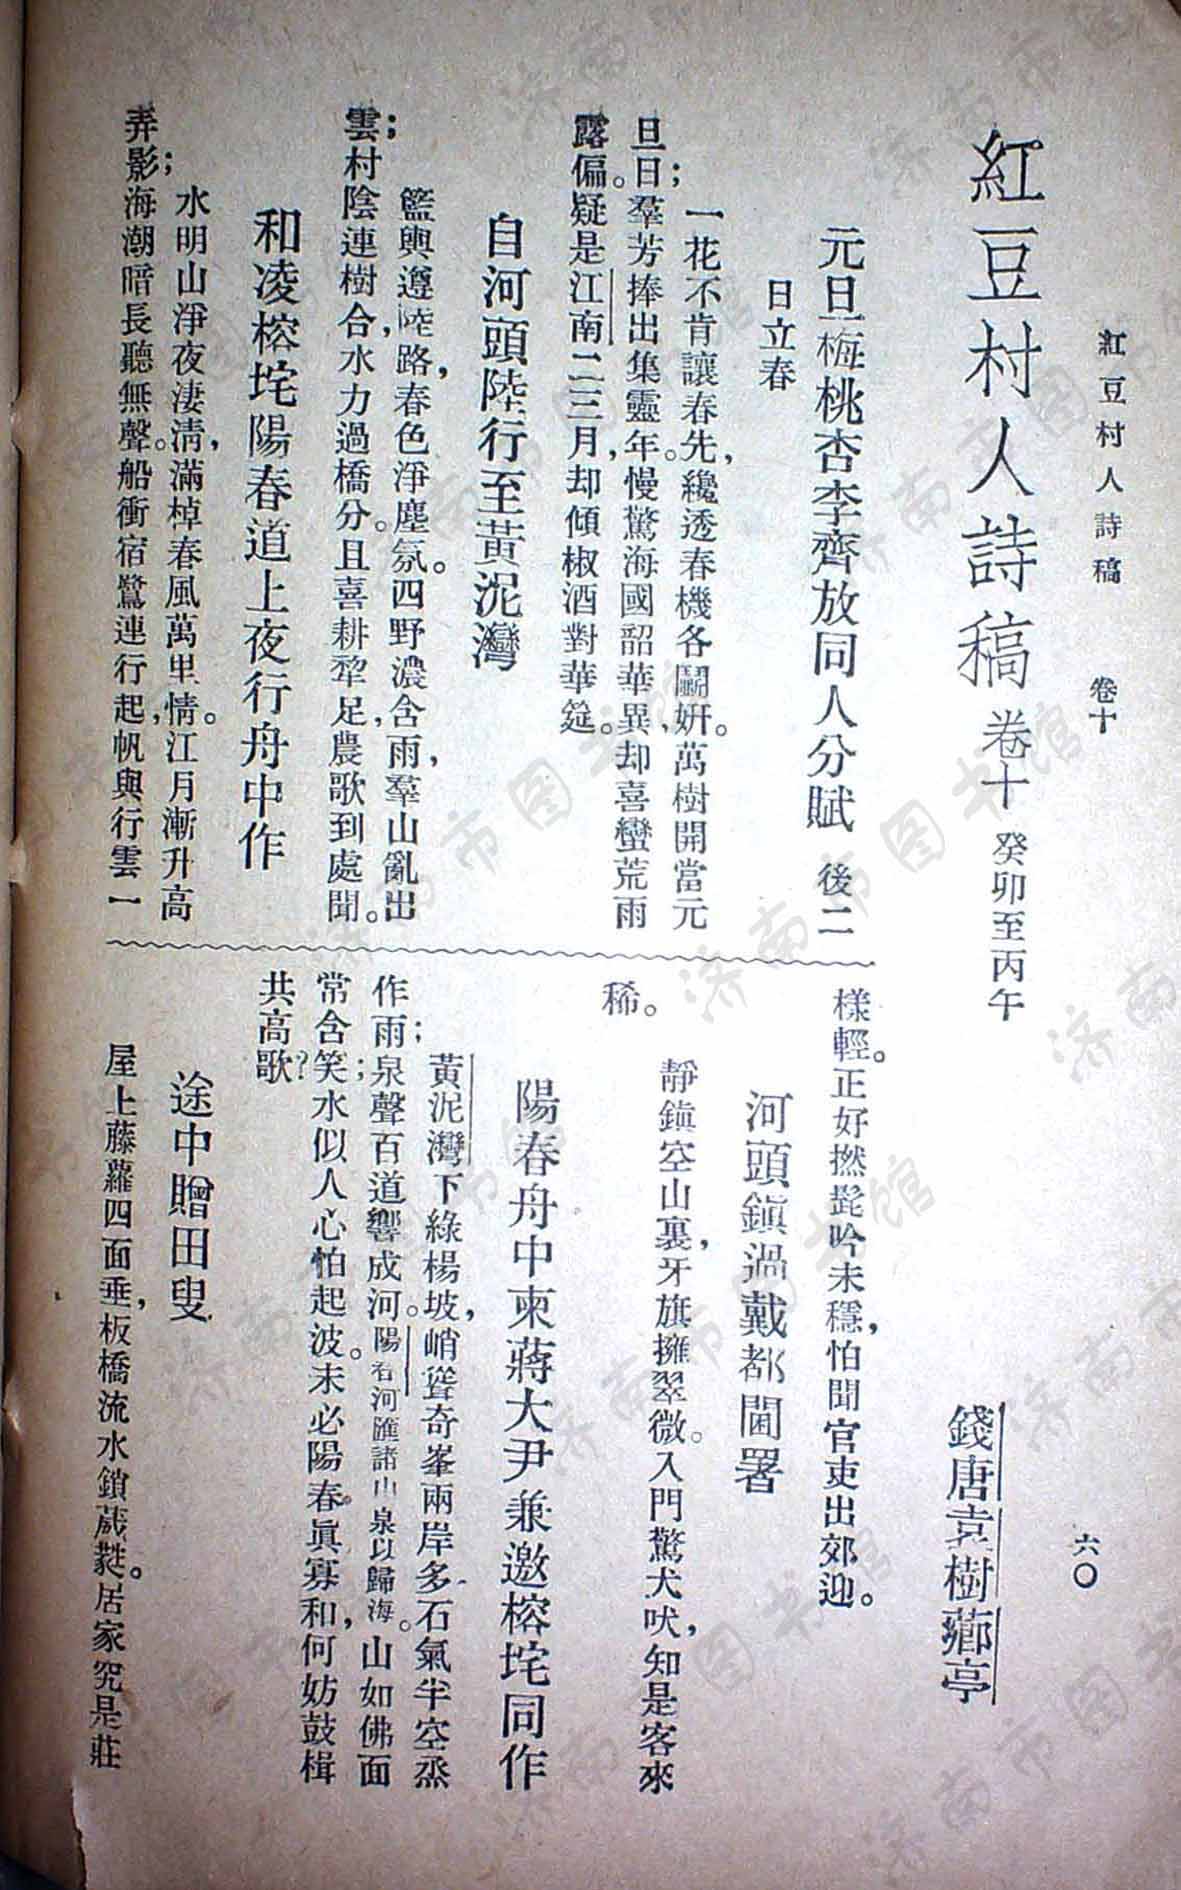 紅豆村人詩稿　卷十
六〇
紅豆村人詩稿卷十　癸卯至丙午
錢唐袁樹薌亭
元旦梅桃杏李齊放同人分賦　後二
日立春
一花不肯讓春先，纔透春機各鬭妍。萬樹開當元
旦日；羣芳捧出集靈年。慢驚海國韶華異，却喜蠻荒雨
露偏。疑是江南二三月，却傾椒酒對華筵。
自河頭陸行至黃泥灣
籃輿遵陸路，春色淨塵氛。四野濃含雨，羣山亂出
雲；村陰連樹合，水力過橋分。且喜耕犂足，農歌到處聞。
和凌榕垞陽春道上夜行舟中作
水明山淨夜淒清，滿棹春風萬里情。江月漸升高
弄影；海潮暗長聽無聲。船衝宿鷺連行起，帆與行雲一
樣輕。正好撚髭吟未穩，怕聞官吏出郊迎。
河頭鎭過戴都閫署
靜鎭空山裏，牙旗擁翠微。入門驚犬吠，知是客來
稀。
陽春舟中柬蔣大尹兼邀榕垞同作
黃泥灣下綠楊坡，峭聳奇峯兩岸多。石氣半空烝
作雨；泉聲百道響成河。陽春河匯諸山泉以歸海。山如佛面
常含笑；水似人心怕起波。未必陽春眞寡和，何妨鼓楫
共高歌？
途中贈田叟
屋上藤蘿四面垂，板橋流水鎖葳蕤。居家究是莊